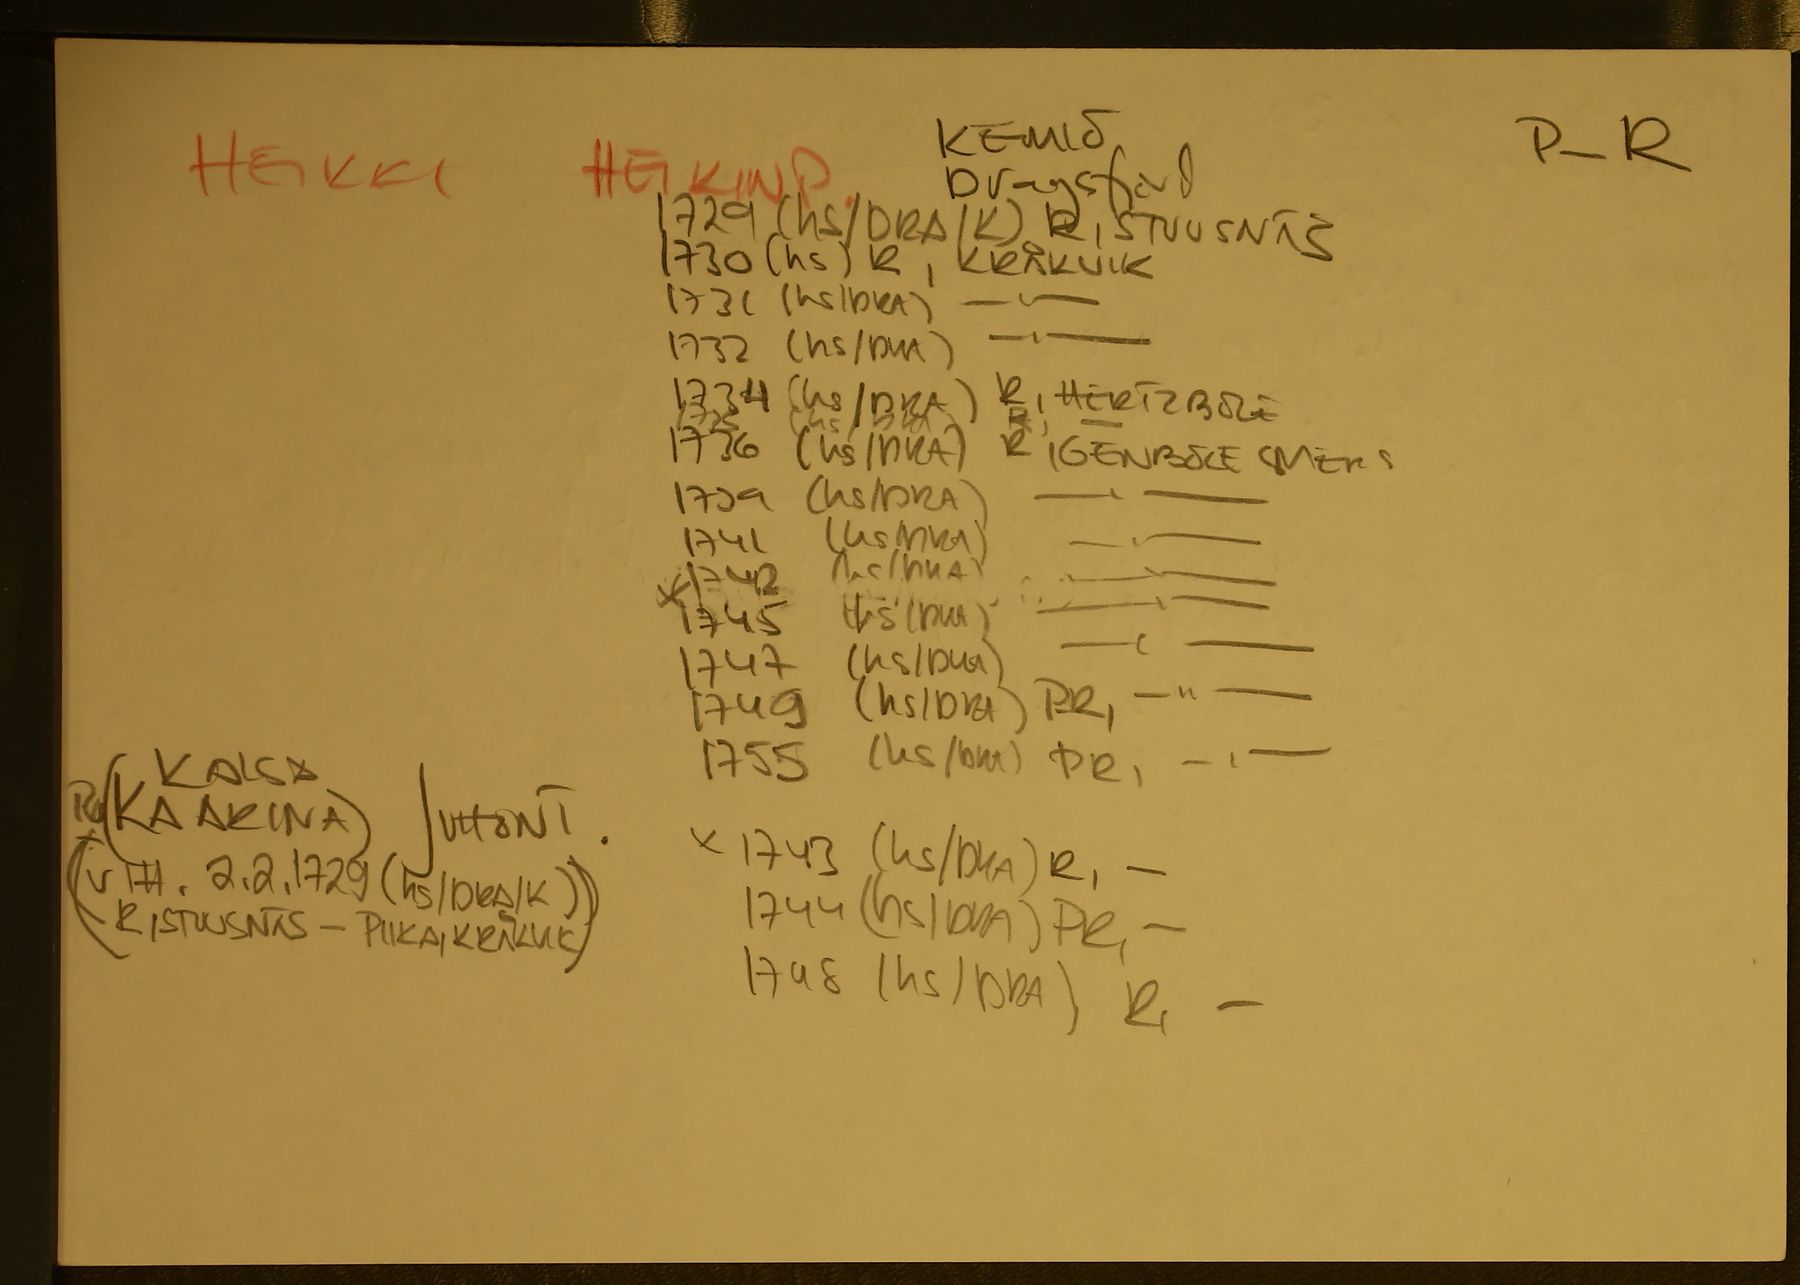 HEIKKI HEIKINP. KEMIÖ P-R
Dragsfjard
1729 (hs/DRA/K) R, STUUSNÄS
1730 (hs) R, KRÅKVIK
1731 (hs/DRA) —"—
1732 (hs/DRA) —"—
1734 (hs/DRA) R, HERTZBÖLE
1735 (hs/DRA) R, —
1736 (hs/DRA) R, GENBÖLE
1739 (hs/DRA) —"—
1741 (hs/DRA) —"—
x 1742 (hs/DRA) —"—
1745 (hs/DRA) —"—
1747 (hs/DRA) —"—
1749 (hs/DRA) PR, —"—
1755 (hs/DRA) PR, —"—
KAISA
(KAARINA) JUHONT.
(VIH. 2.2.1729 (hs/DRA/K))
R, STUUSNÄS — PIIKA, KRÅKVIK)
x 1743 (hs/DRA) R, —
1744 (hs/DRA) PR, —
1748 (hs/DRA) R, —